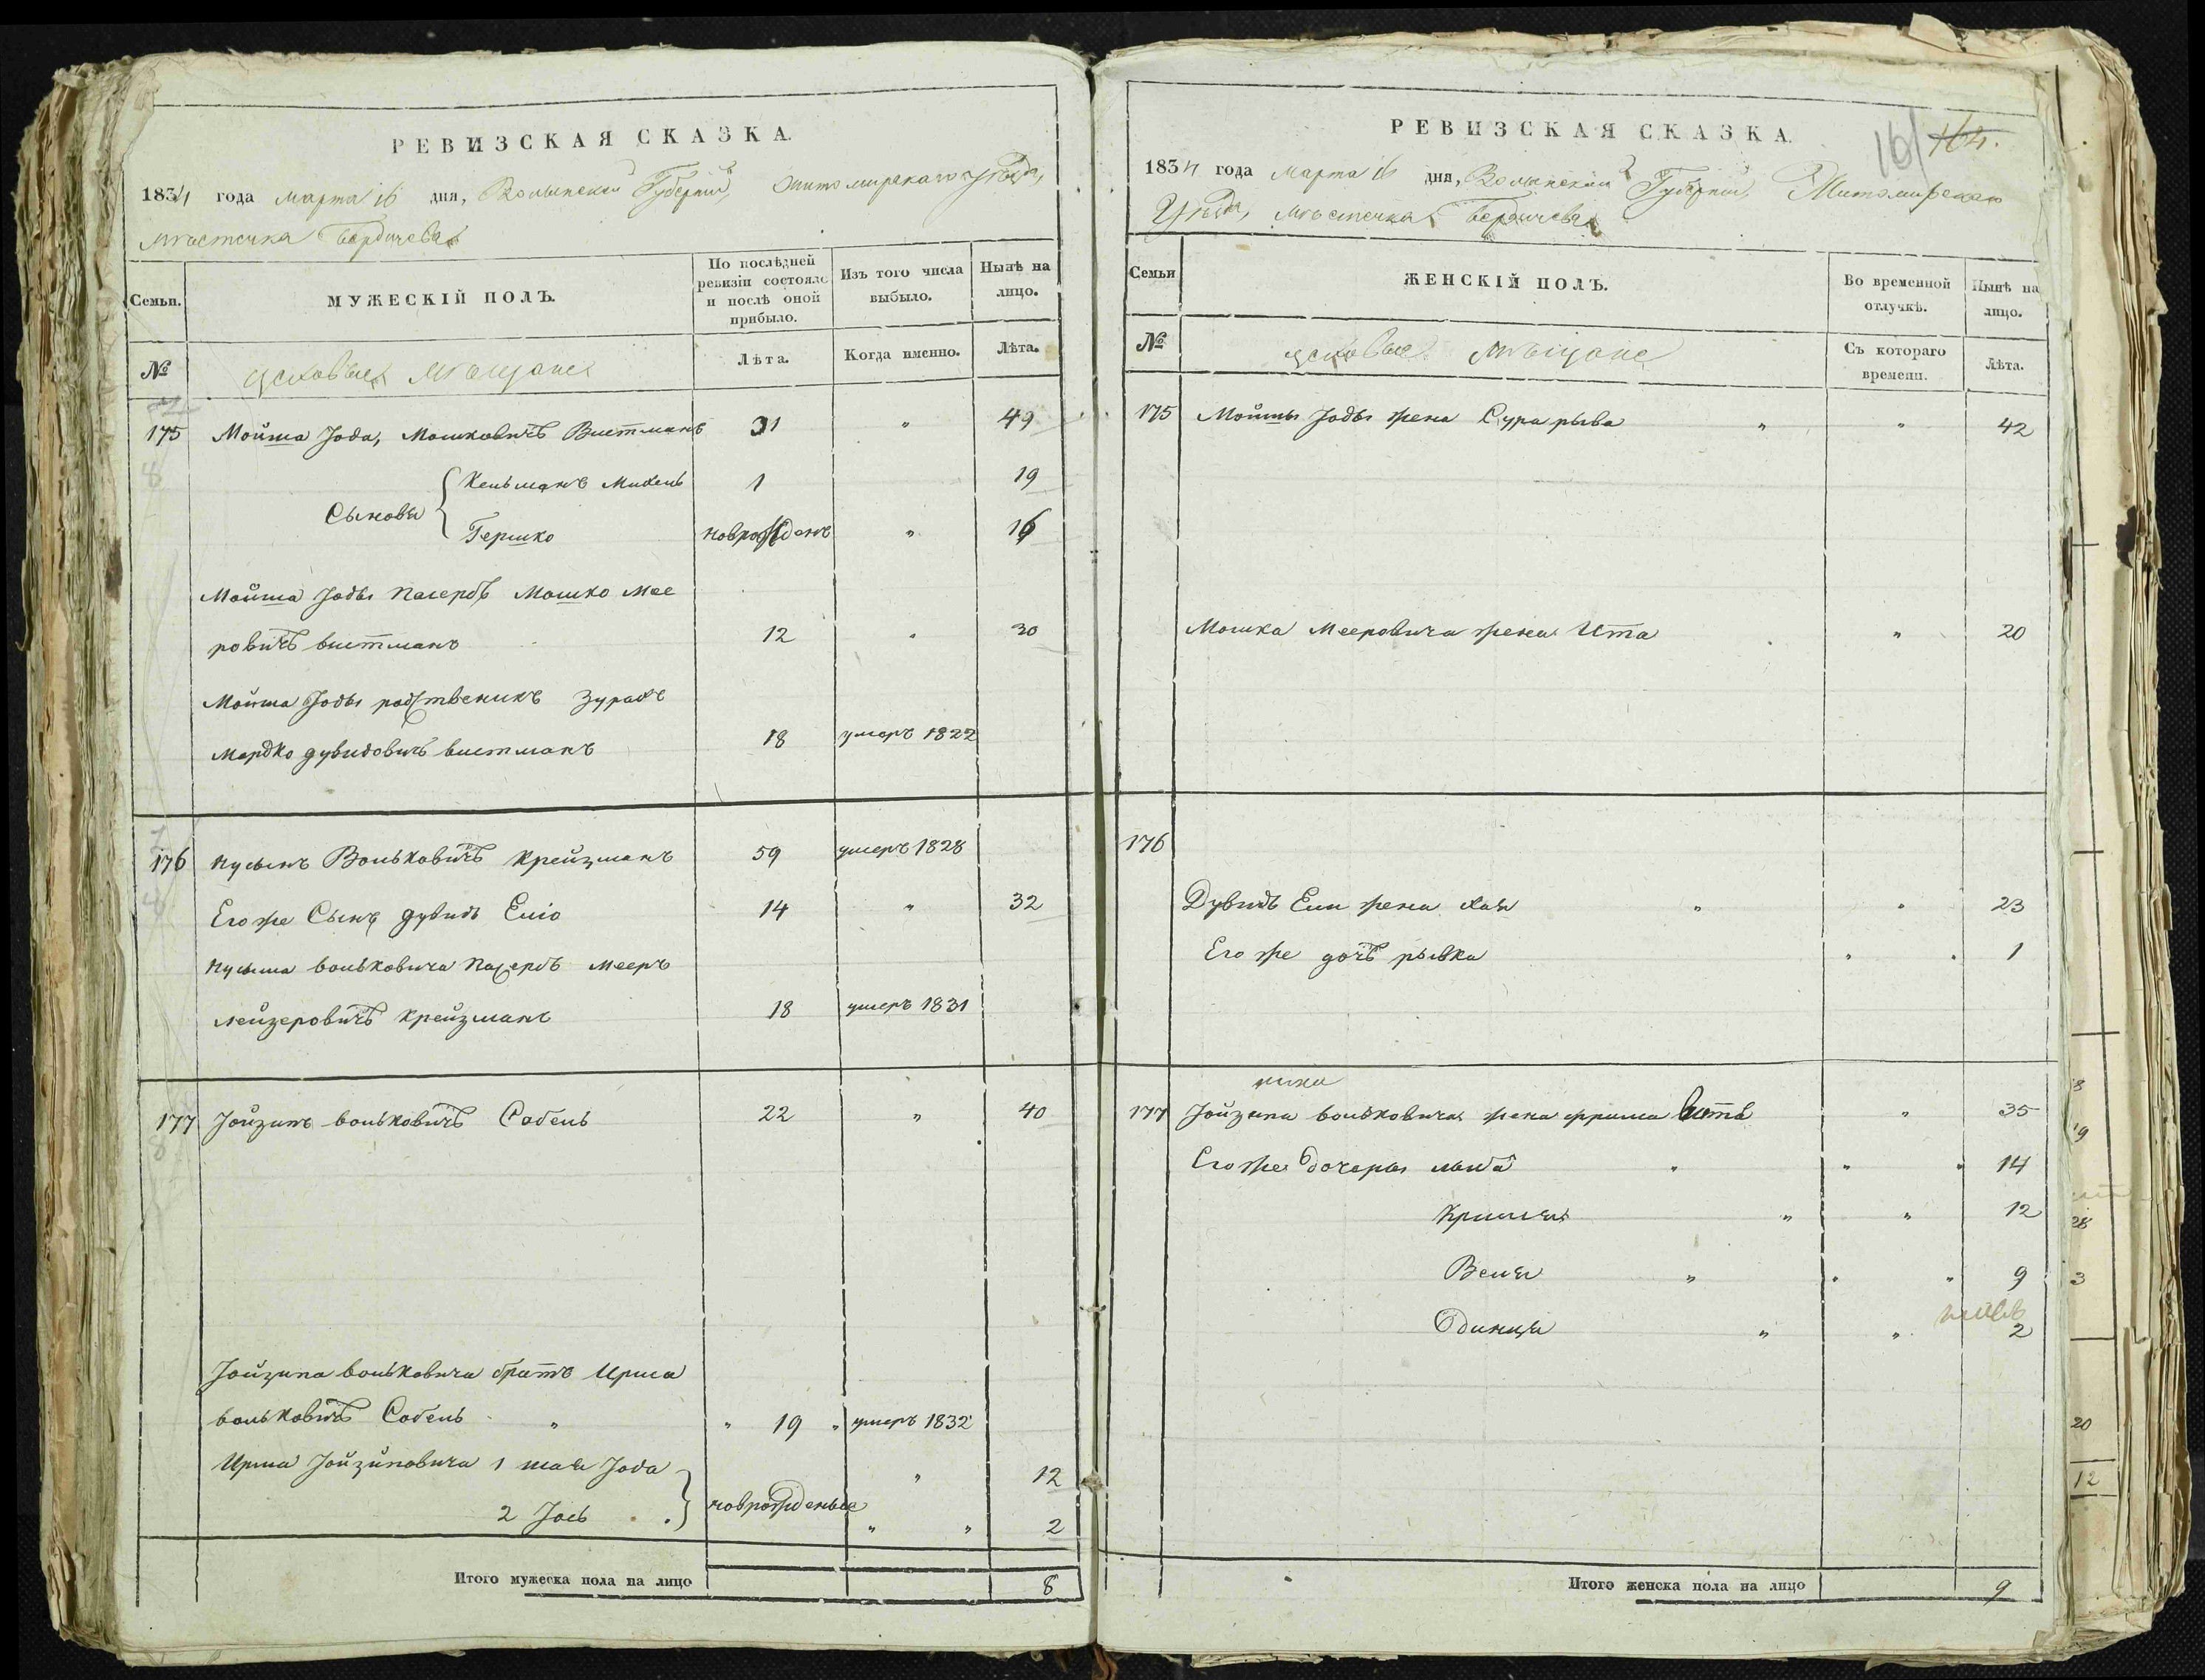 РЕВИЗСКАЯ СКАЗКА.
1834 года марта 16 дня, Волынской Губерніи, Житомирскаго Уѣзда,
мѣстечка Бердичева
Семьи.
МУЖЕСКІЙ ПОЛЪ.
По послѣдней ревизіи состояло и послѣ оной прибыло.
Изъ того числа выбыло.
Нынѣ на лицо.
№
мѣщане
Лѣта.
Когда именно.
Лѣта.
175 Мойша Іода, Мошковичъ Вистманъ 31 " 49
Сыновья
Кельманъ Михель 1 19
Гершко новорожденъ " 16
Мойша Іоды пасербъ Мошко Мее
ровичъ вистманъ 12 " 30
Мойша Іоды родственикъ Зурахъ
Мордко дувидовичъ вистманъ 18 умеръ 1822
176 Нусынъ Вольковичъ Крейзманъ 59 умеръ 1828
Его же Сынъ дувидъ Еліо 14 " 32
Нусына вольковича пасербъ Мееръ
лейзеровичъ Крейзманъ 18 умеръ 1831
177 Іойзипъ вольковичъ Собель 22 " 40
Іойзипа вольковича братъ Ирша
вольковичъ Собель " " 19 " умеръ 1832
Ирша Іойзиповича 1 шая Іода " 12
2 Іось новорожденые " " 2
Итого мужеска пола на лицо 8
РЕВИЗСКАЯ СКАЗКА.
161 164.
1834 года марта 16 дня, Волынской Губерніи, Житомирскаго
Уѣзда, мѣстечка Бердичева
Семьи
ЖЕНСКІЙ ПОЛЪ.
Во временной отлучкѣ.
Нынѣ на лицо.
№
мѣщане
Съ котораго времени.
Лѣта.
175 Мойшы Іоды жена Сура рыва " " 42
Мошка Мееровича жена Ита " 20
176
Дувидъ Ели жена хая " " 23
Его же дочъ рывка " " 1
177 Іойзипа вольковича жена фрима " 35
Его же дочеры " " " 14
" " 12
Веня " " " 9
Одинця " " 2
Итого женска пола на лицо 9